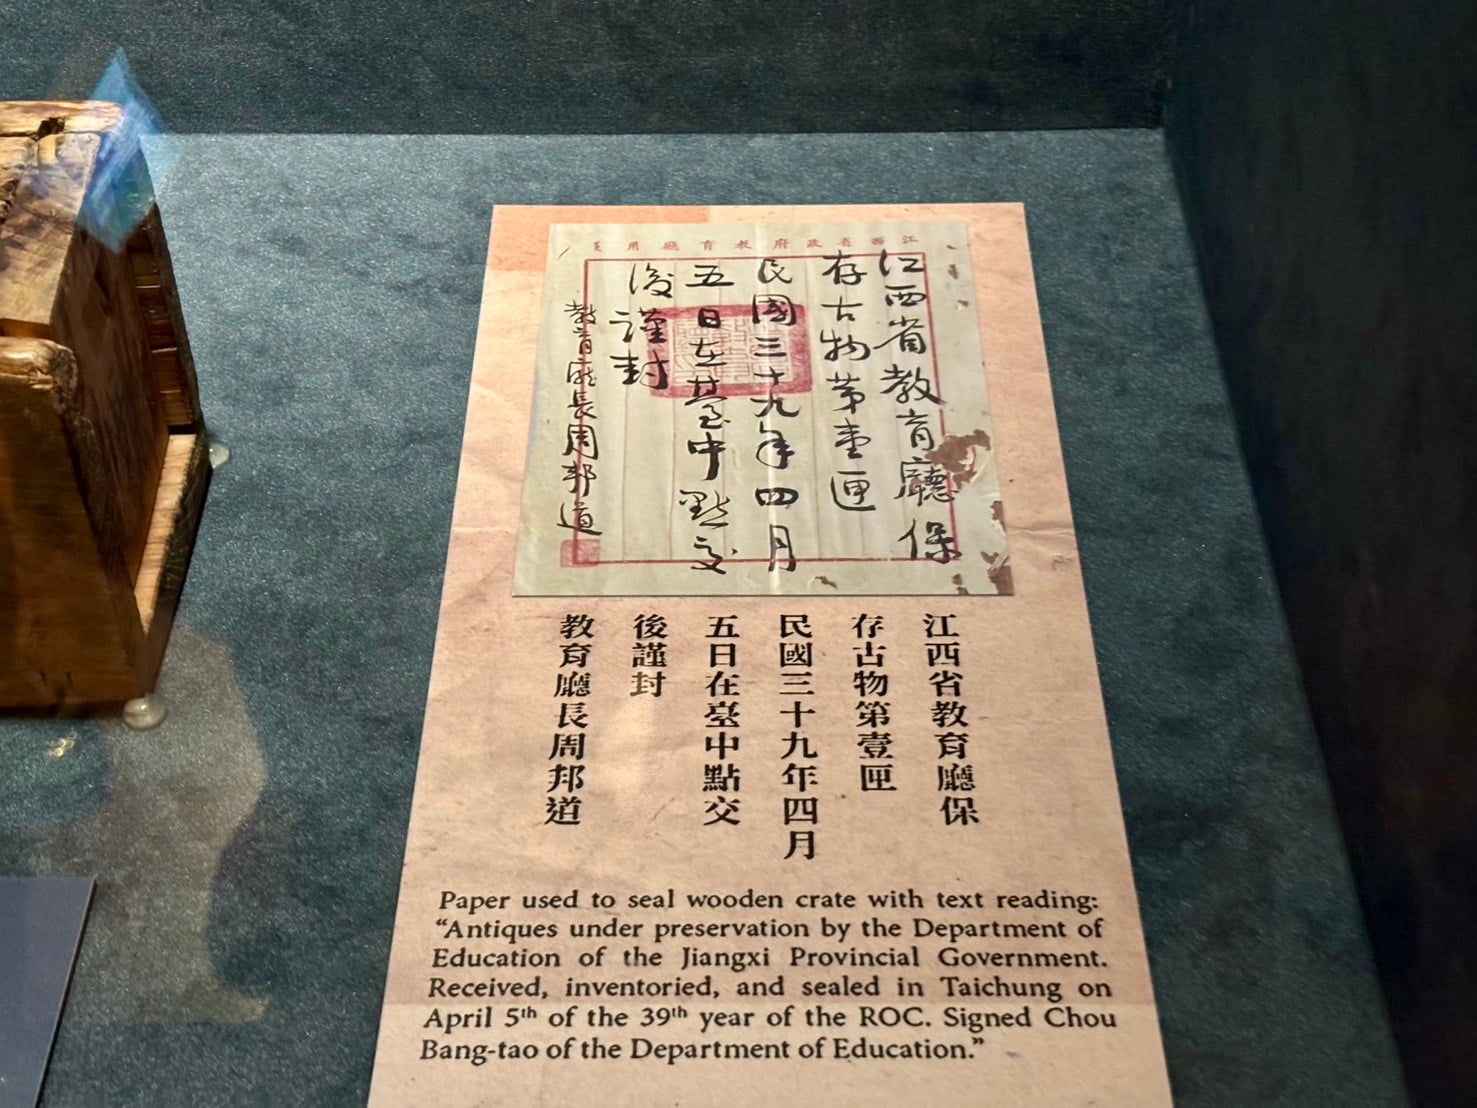 江西省政府教育廳用箋
江西省教育廳保
存古物第壹匣
民國三十九年四月
五日在臺中點交
後謹封
教育廳長周邦道
江西省教育廳保
存古物第壹匣
民國三十九年四月
五日在臺中點交
後謹封
教育廳長周邦道
Paper used to seal wooden crate with text reading:
“Antiques under preservation by the Department of
Education of the Jiangxi Provincial Government.
Received, inventoried, and sealed in Taichung on
April 5th of the 39th year of the ROC. Signed Chou
Bang-tao of the Department of Education.”